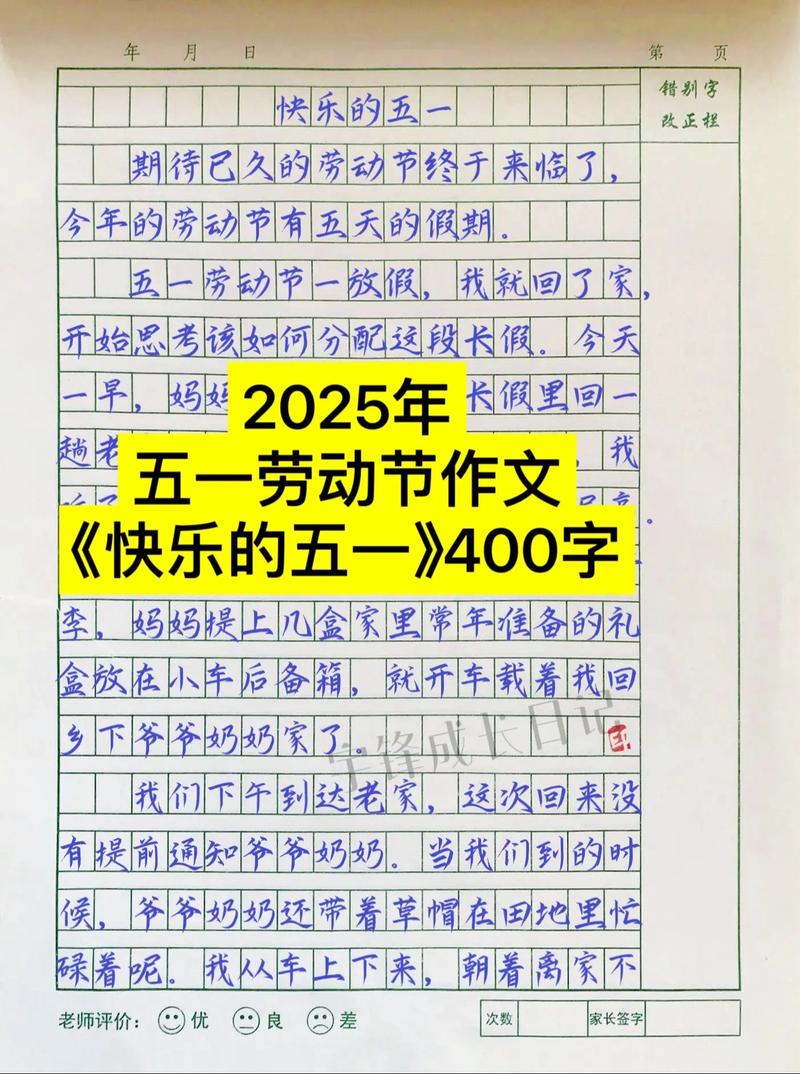 年 月 日
第 页
错别字
改正栏
快乐的五一
期待已久的劳动节终于来临了，
今年的劳动节有五天的假期。
五一劳动节一放假，我就回了家，
开始思考该如何分配这段长假。今天
一早，妈妈
长假里回一
趟老
我
2025年
五一劳动节作文
《快乐的五一》400字
李，妈妈提上几盒家里常年准备的礼
盒放在小车后备箱，就开车载着我回
乡下爷爷奶奶家了。
宇锋成长日记
我们下午到达老家，这次回来没
有提前通知爷爷奶奶。当我们到的时
候，爷爷奶奶还带着草帽在田地里忙
碌着呢。我从车上下来，朝着离家不
老师评价： 优 良 差
次数
家长签字